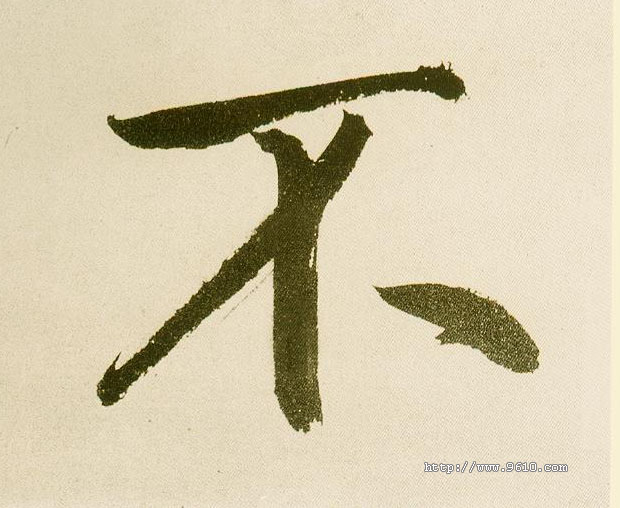 不
http://www.9610.com